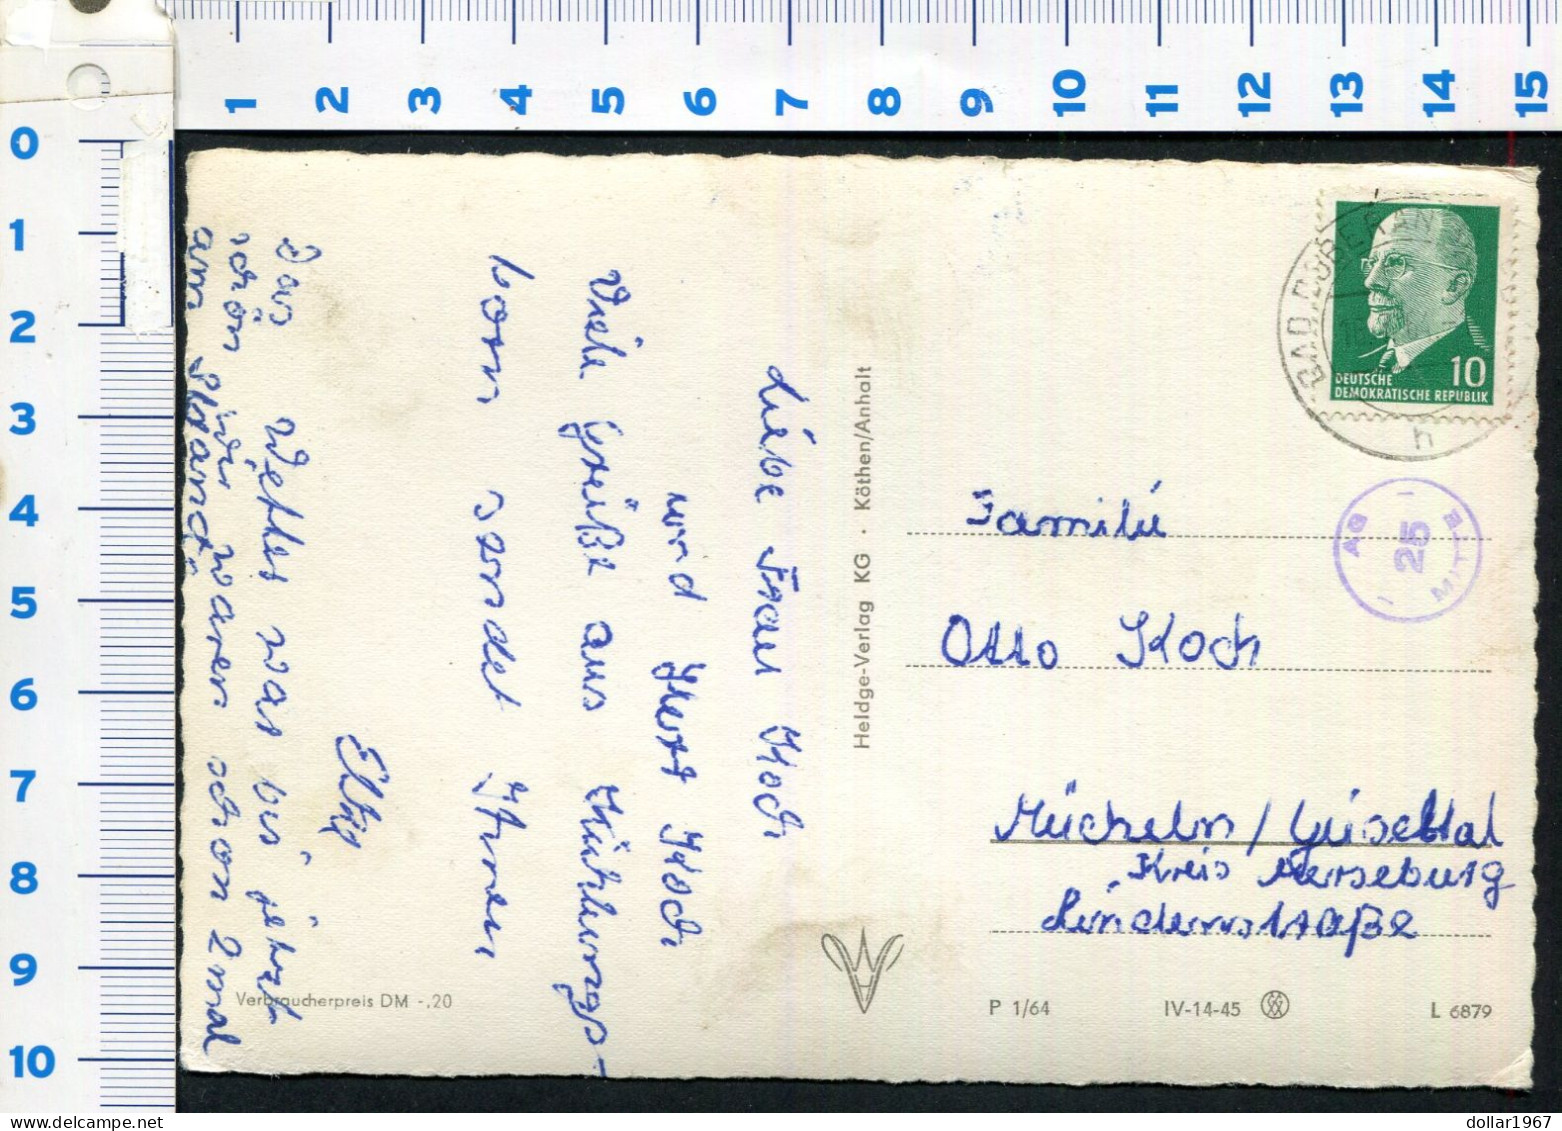 1 2 3 4 5 6 7 8 9 10 11 12 13 14 15
0
1
2
3
4
5
6
7
8
9
10
Liebe Frau Koch
und Herr Koch
Viele Grüße aus Kühlungs-
born sendet Ihnen
Elke
Das Wetter war bis jetzt
schön wir waren schon 2 mal
am Strand.
Verbraucherpreis DM -.20
Heldge-Verlag KG · Köthen/Anhalt
BAD DOBERAN
h
10
DEUTSCHE
DEMOKRATISCHE REPUBLIK
AG
25
MITTE
Familie
Otto Koch
Mücheln/Geiseltal
Kreis Merseburg
Lindenstraße
P 1/64 IV-14-45 L 6879
dollar1967